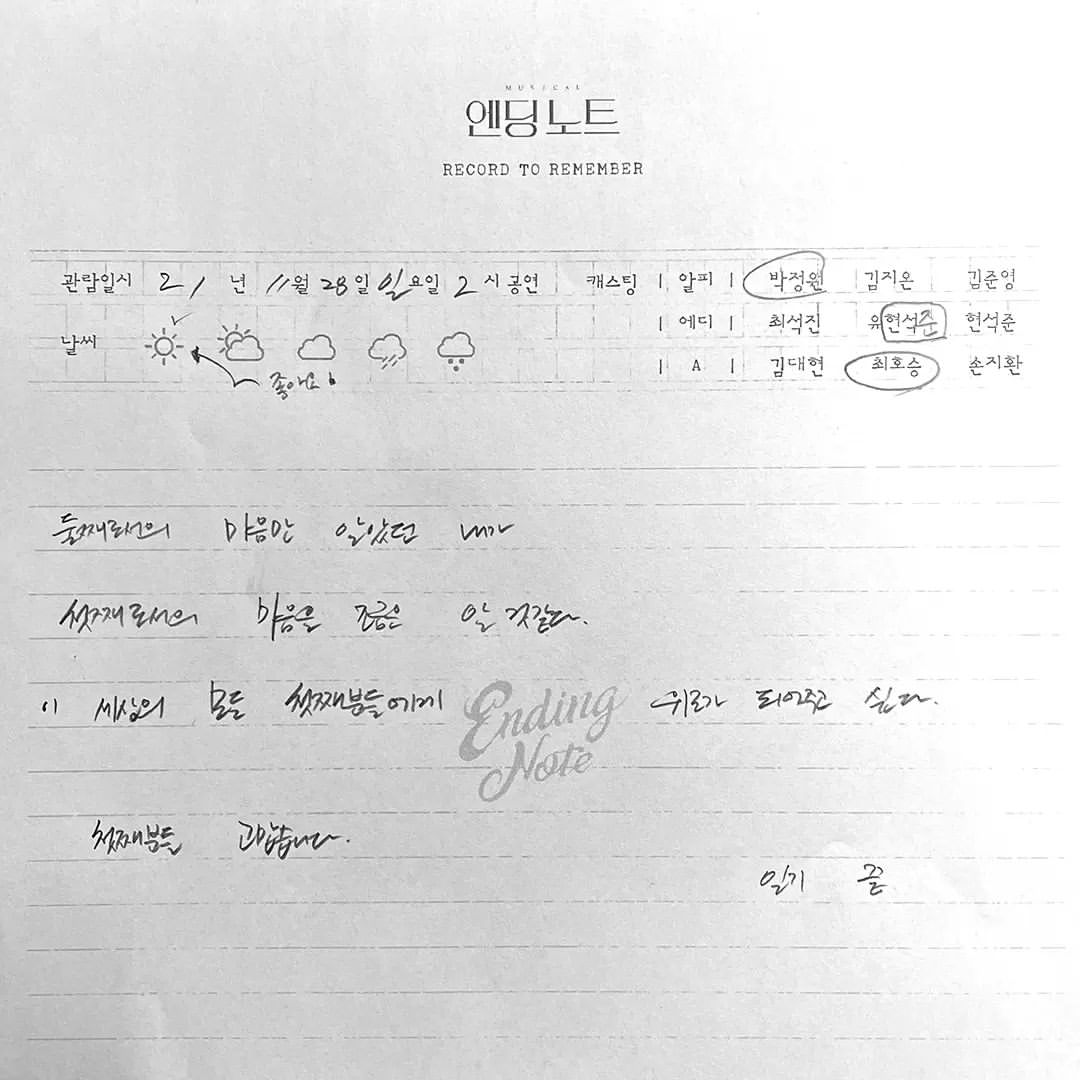 MUSICAL
엔딩 노트
RECORD TO REMEMBER
관람일시 21년 11월 28일 일요일 2시 공연 캐스팅 | 알피 | 박정원 김지온 김준영
| 에디 | 최석진 유현석준 현석준
날씨
| A | 김대현 최호승 손지환
좋아요!
둘째로서의 마음만 알았던 내가
첫째로서의 마음을 조금은 알 것같다.
이 세상의 모든 첫째분들에게 위로가 되어주고 싶다.
Ending
Note
첫째분들 고맙습니다.
일기 끝